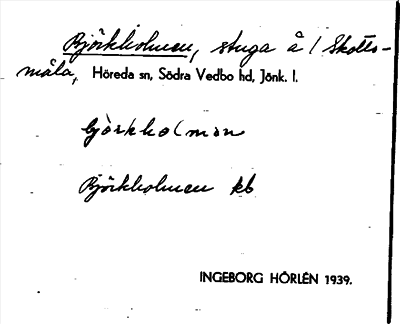 Björkholmen, stuga å 1 Skotts-
måla, Höreda sn, Södra Vedbo hd, Jönk. l.
bjòrkholmən
Björkholmen kb
INGEBORG HÖRLÉN 1939.